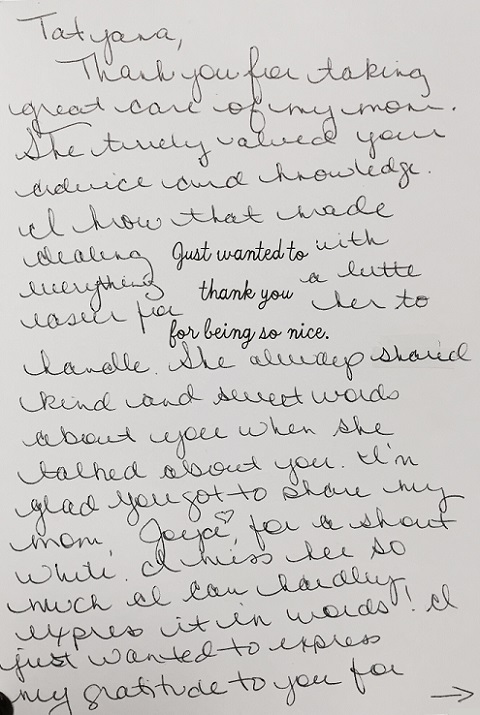 Tatyana,
Thank you for taking
great care of my mom.
She truly valued your
advice and knowledge.
I know that made
dealing Just wanted to with
everything thank you a little
easier for her to
for being so nice.
handle. She always shared
kind and sweet words
about you when she
talked about you. I'm
glad you got to share my
mom, Joyce♡, for a short
while. I miss her so
much I can hardly
express it in words! I
just wanted to express
my gratitude to you for
→